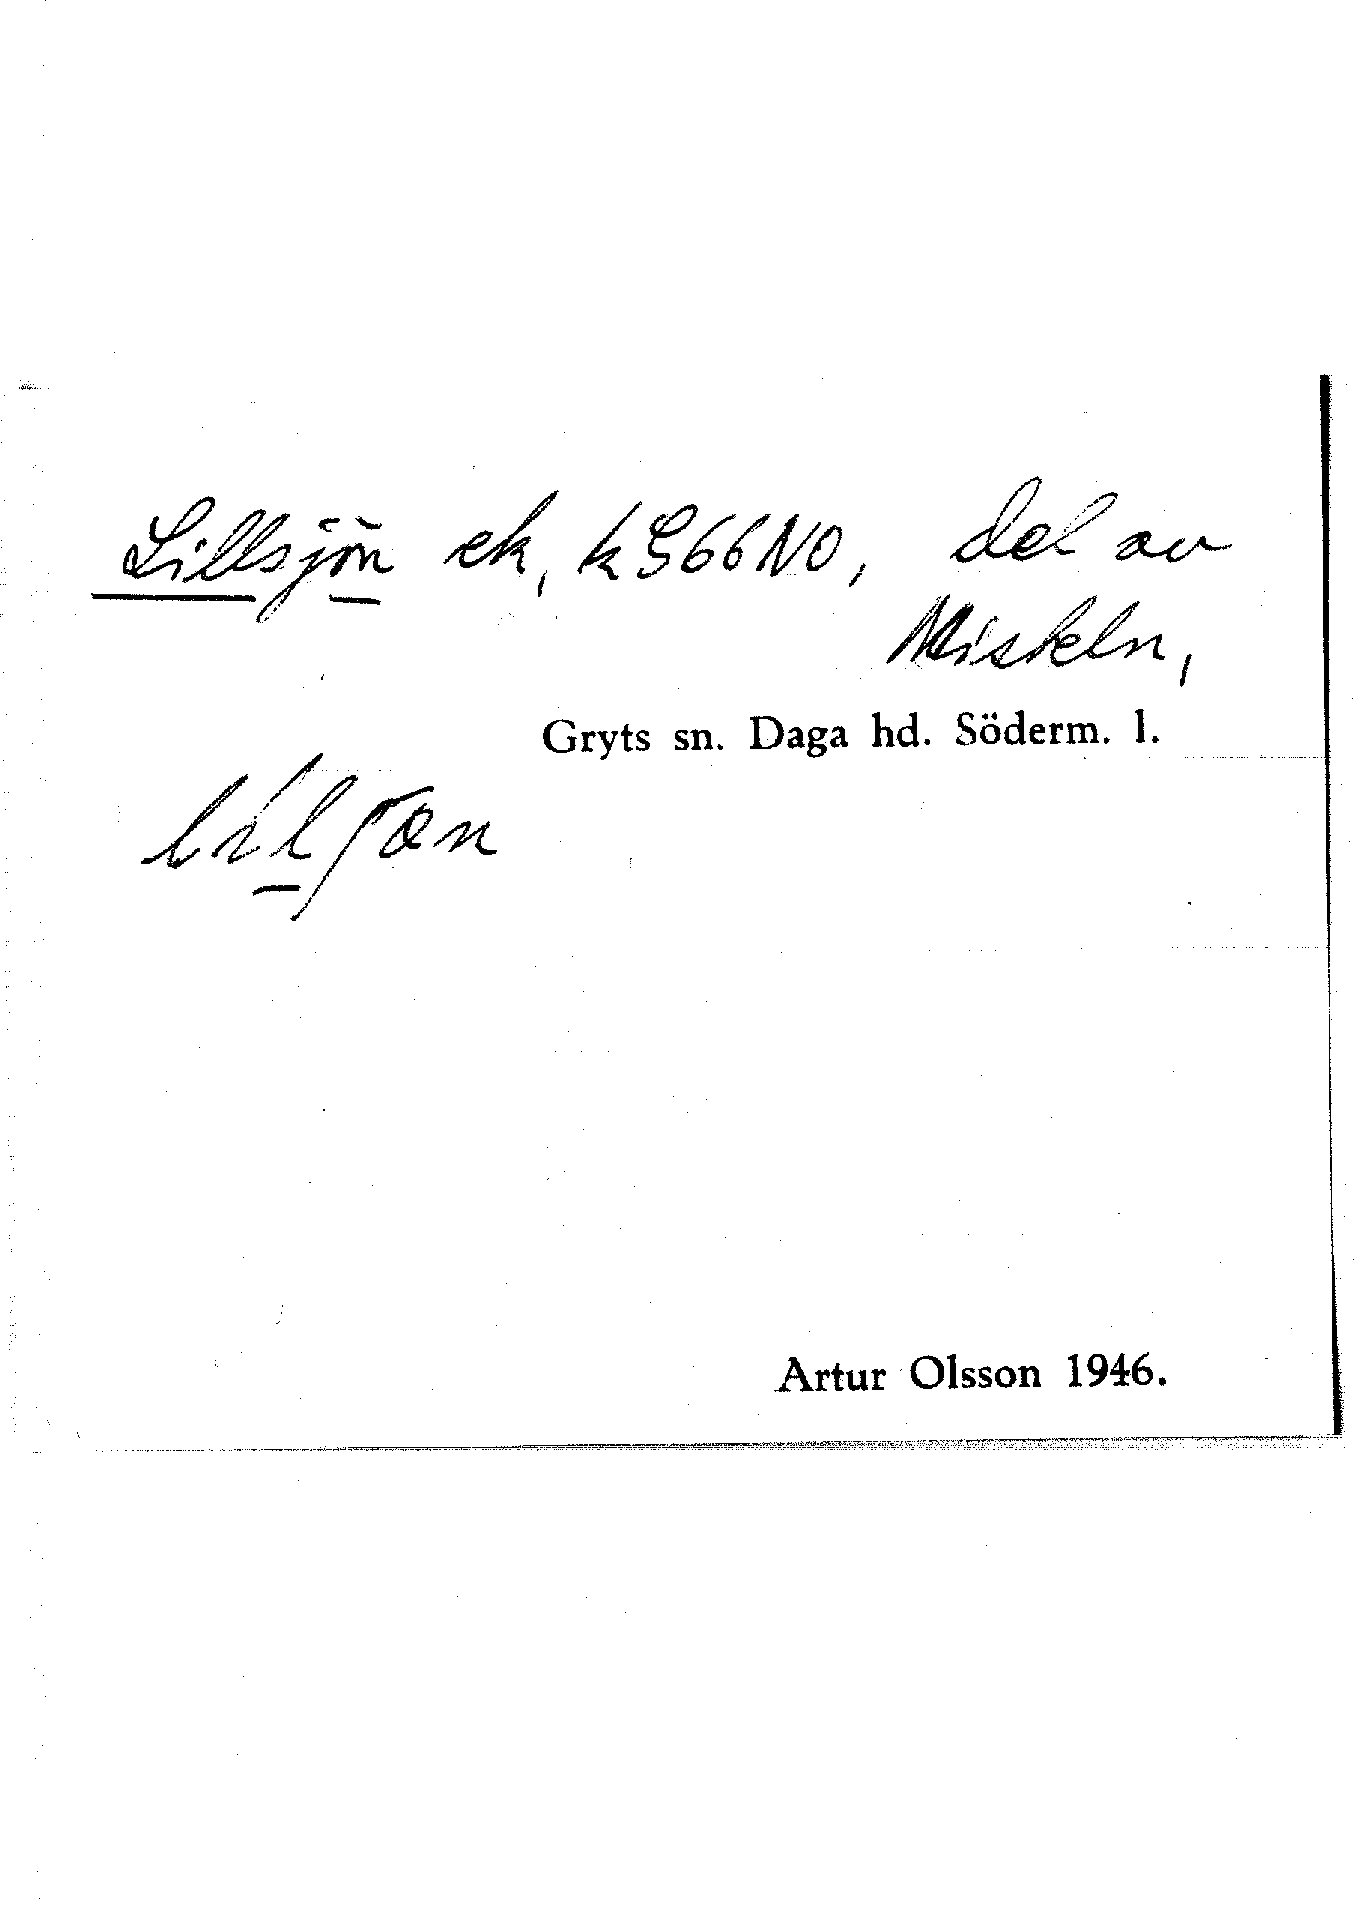 Lillsjön ek, kG66NO, del av
Misteln,
Gryts sn. Daga hd. Söderm. l.
Artur Olsson 1946.